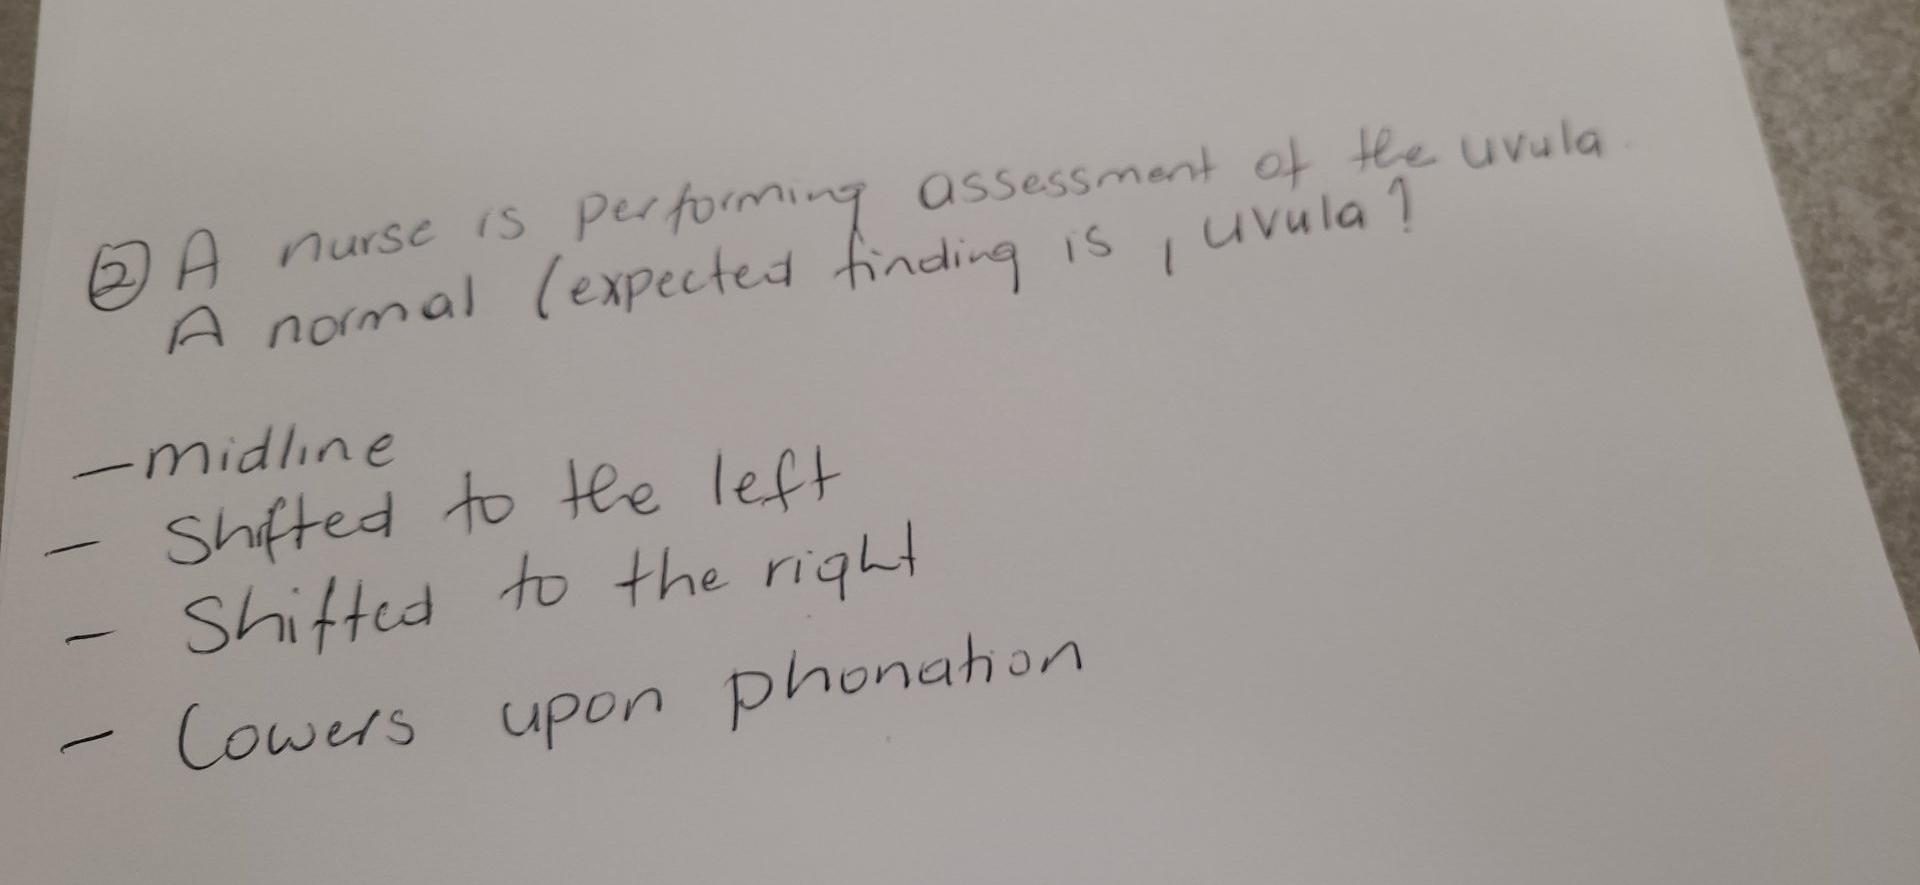 ② A nurse is performing assessment of the uvula.
A normal (expected finding is , uvula?
- midline
- Shifted to the left
- Shifted to the right
- Lowers upon phonation